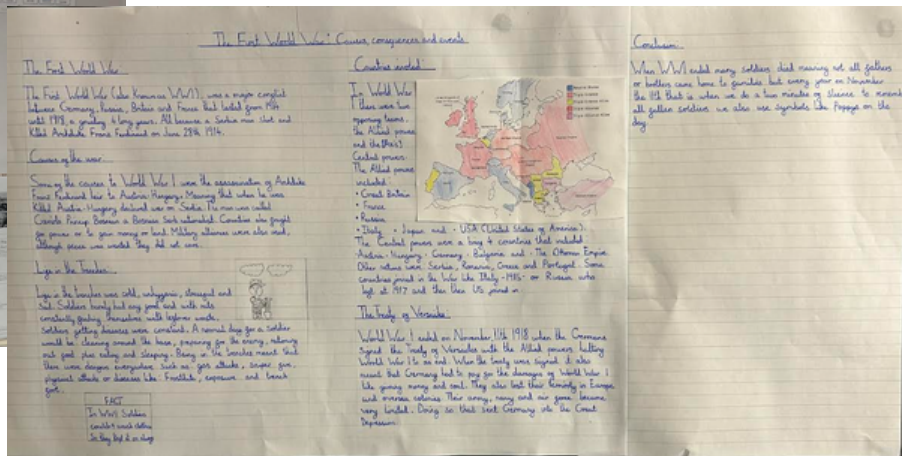 The First World War: Causes, consequences and events
The First World War:
The First World War (also known as WW1), was a major conflict
between Germany, Russia, Britain and France that lasted from 1914
until 1918, a grueling 4 long years. All because a Serbian man shot and
killed Archduke Franz Ferdinand on June 28th 1914.
Causes of the war:
Some of the causes to World War 1 were the assassination of Archduke
Franz Ferdinand heir to Austria-Hungary. Meaning that when he was
killed Austria-Hungary declared war on Serbia. The man was called
Gavrilo Princip Bosnian a Bosnian Serb nationalist. Countries also fought
for power or to gain money or land. Military alliances were also used,
although peace was wanted they did not care.
Life in the Trenches:
Life in the trenches was cold, unhygienic, stressful and
sad. Soldiers barely had any food and with rats
constantly feeding themselves with leftover waste,
soldiers getting diseases were constant. A normal day for a soldier
would be: cleaning around the base, preparing for the enemy, rationing
out food plus eating and sleeping. Being in the trenches meant that
there were dangers everywhere such as: gas attacks, sniper fire,
physical attacks or diseases like: Frostbite, exposure and trench
foot.
FACT
In WW1 Soldiers
couldn't wash clothes
Countries involved:
In World War
1 there were two
opposing teams.
the Allied powers
and the
Central powers.
The Allied powers
included:
• Great Britain
• France
• Russia
• Italy • Japan and • USA (United States of America).
The Central powers were a 4 countries that included
• Austria-Hungary • Germany • Bulgaria and • The Ottoman Empire.
Other nations were Serbia, Romania, Greece and Portugal. Some
countries joined in the War like Italy -1915- or Russia who
left at 1917 and then the US joined in.
The Treaty of Versailles:
World War 1 ended on November 11th 1918 when the Germans
signed the Treaty of Versailles with the Allied powers halting
World War 1 to an end. When the treaty was signed it also
meant that Germany had to pay for the damages of World War 1
like giving money and coal. They also lost their territory in Europe
and oversea colonies. Their army, navy and air force became
very limited. Doing so that sent Germany into the Great
Depression.
Conclusion:
When WW1 ended many soldiers died meaning not all fathers
or brothers came home to families but every year on November
the 11th that is when we do a two minutes of silence to remember
all fallen soldiers. we also use symbols like Poppys on the
day.